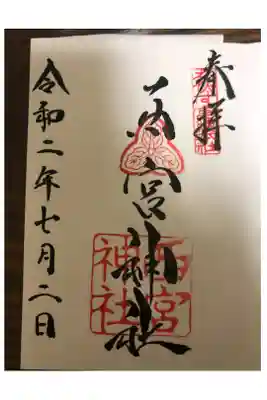 奉拝
西宮神社
西宮
神社
令和二年七月二日